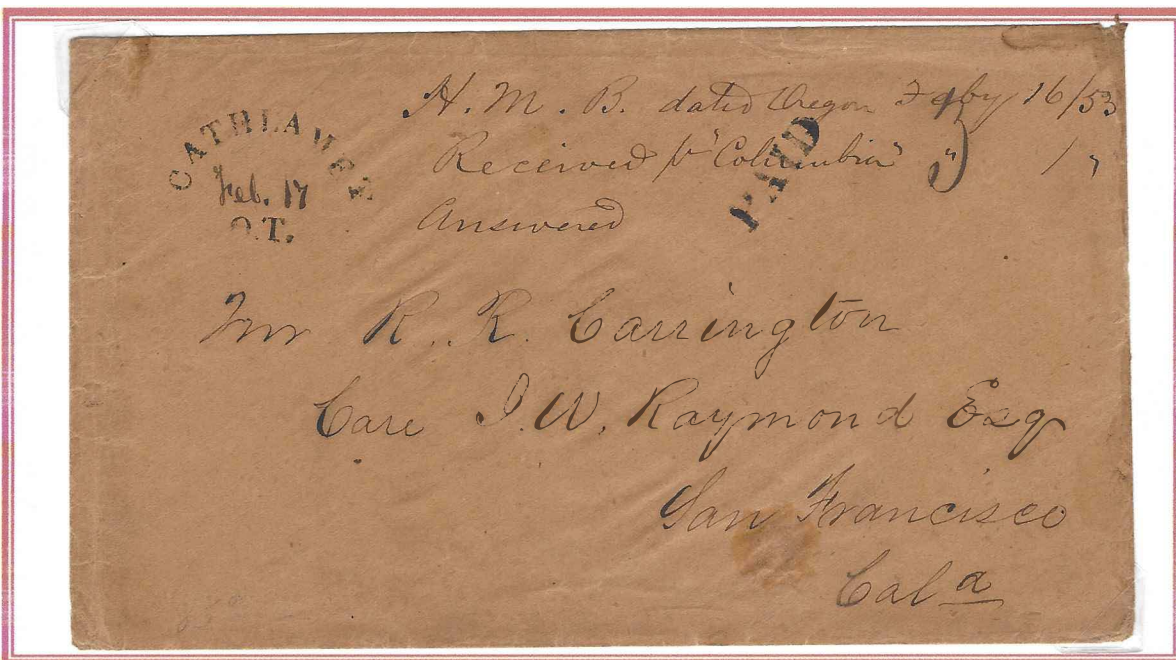 CATHLAMET
Feb. 17
O.T.
H. M. B. dated Oregon Feby 16/53
Received pr "Columbia" " 1 "
Answered
PAID
3
Mr R. R. Carrington
Care I. W. Raymond Esq
San Francisco
Cala